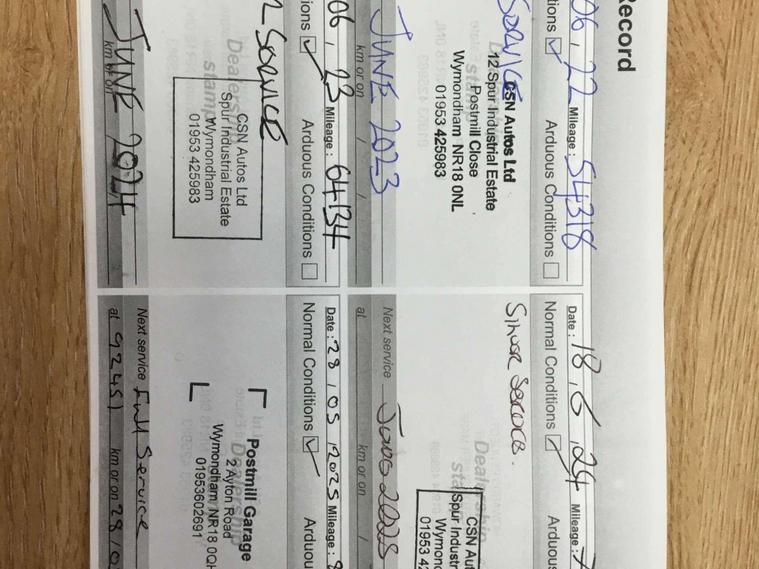 Record
06, 22 Mileage: 54318
tions Arduous Conditions
SERVICE
CSN Autos Ltd
12 Spur Industrial Estate
Postmill Close
Wymondham NR18 0NL
01953 425983
JUNE 2023
km or on
06, 23 Mileage: 64134
tions Arduous Conditions
SERVICE
Dealership
stamp
CSN Autos Ltd
Spur Industrial Estate
Wymondham
01953 425983
JUNE 2024
km or on
Date: 18, 6, 24 Mileage: 7
Normal Conditions Arduous
Silver Service.
Dealership
CSN Aut
Spur Industr
Wymond
01953 42
Next service June 2025
at km or on
Date: 28, 05, 2025 Mileage: 8
Normal Conditions Arduou
Dealership
Postmill Garage
2 Ayton Road
Wymondham, NR18 0QH
01953602691
Next service Full Service
at 92451 km or on 28/0